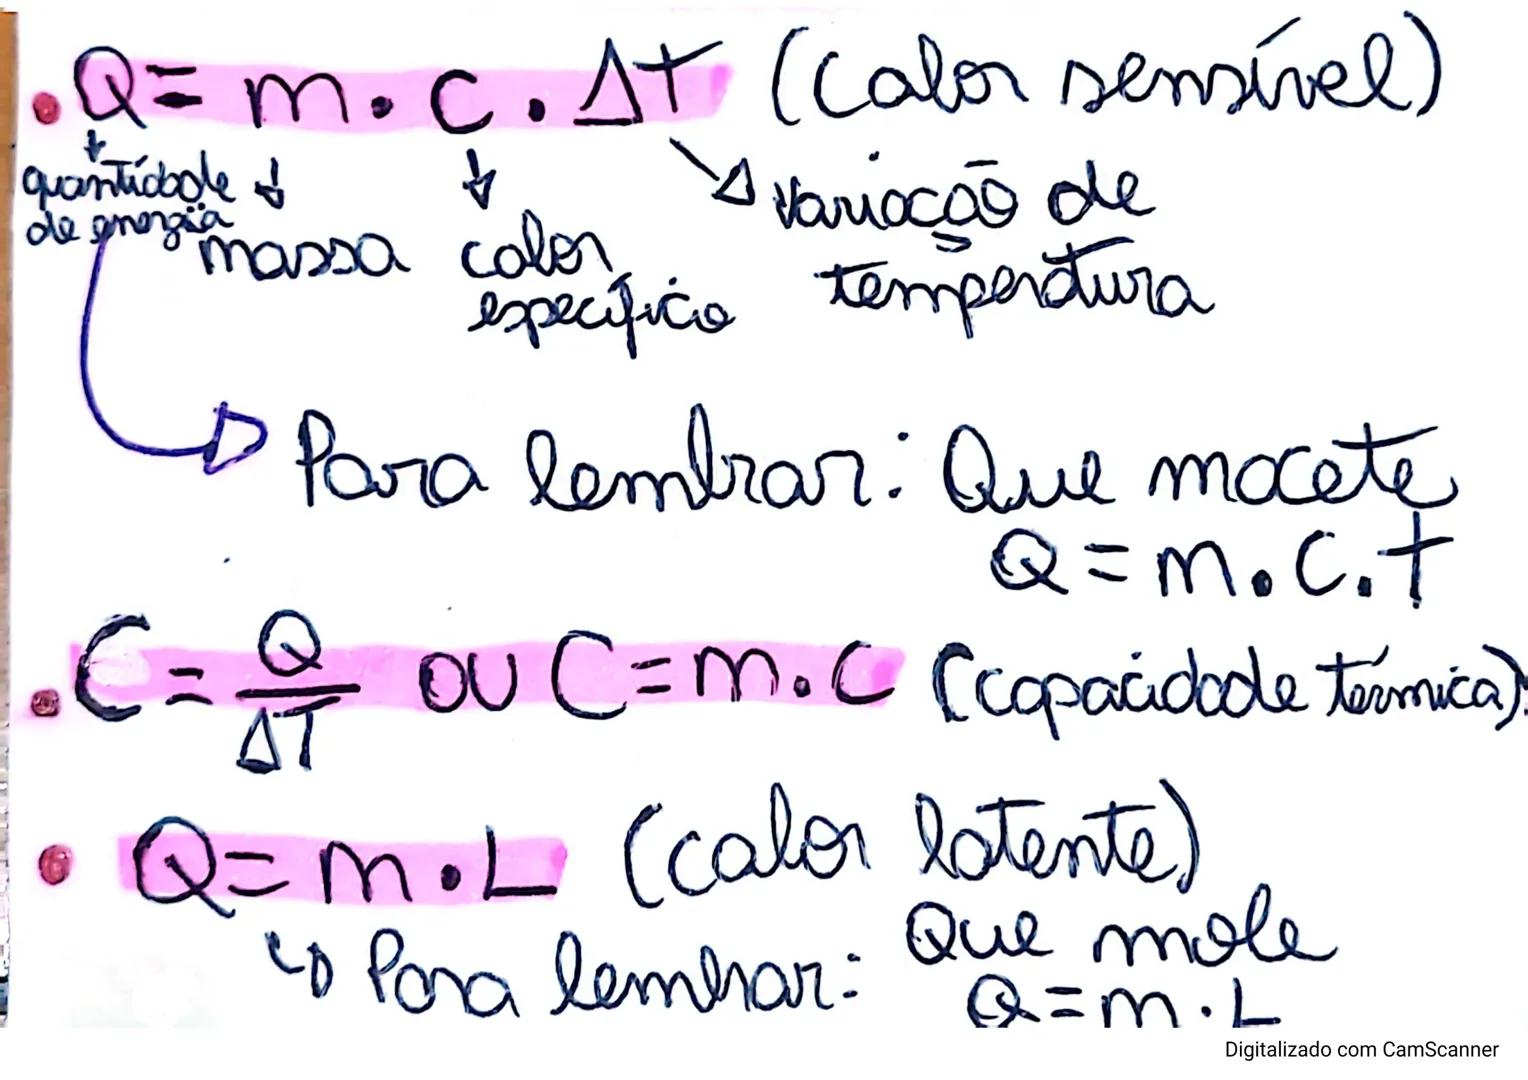 • Q = m . c . Δt (Calor sensível)
quantidade de energia
massa
calor específico
variação de temperatura
Para lembrar: Que macete
Q = m . c . t
• C = Q/ΔT ou C = m . c (capacidade térmica)
• Q = m . L (calor latente)
Para lembrar: Que mole
Q = m . L
Digitalizado com CamScanner